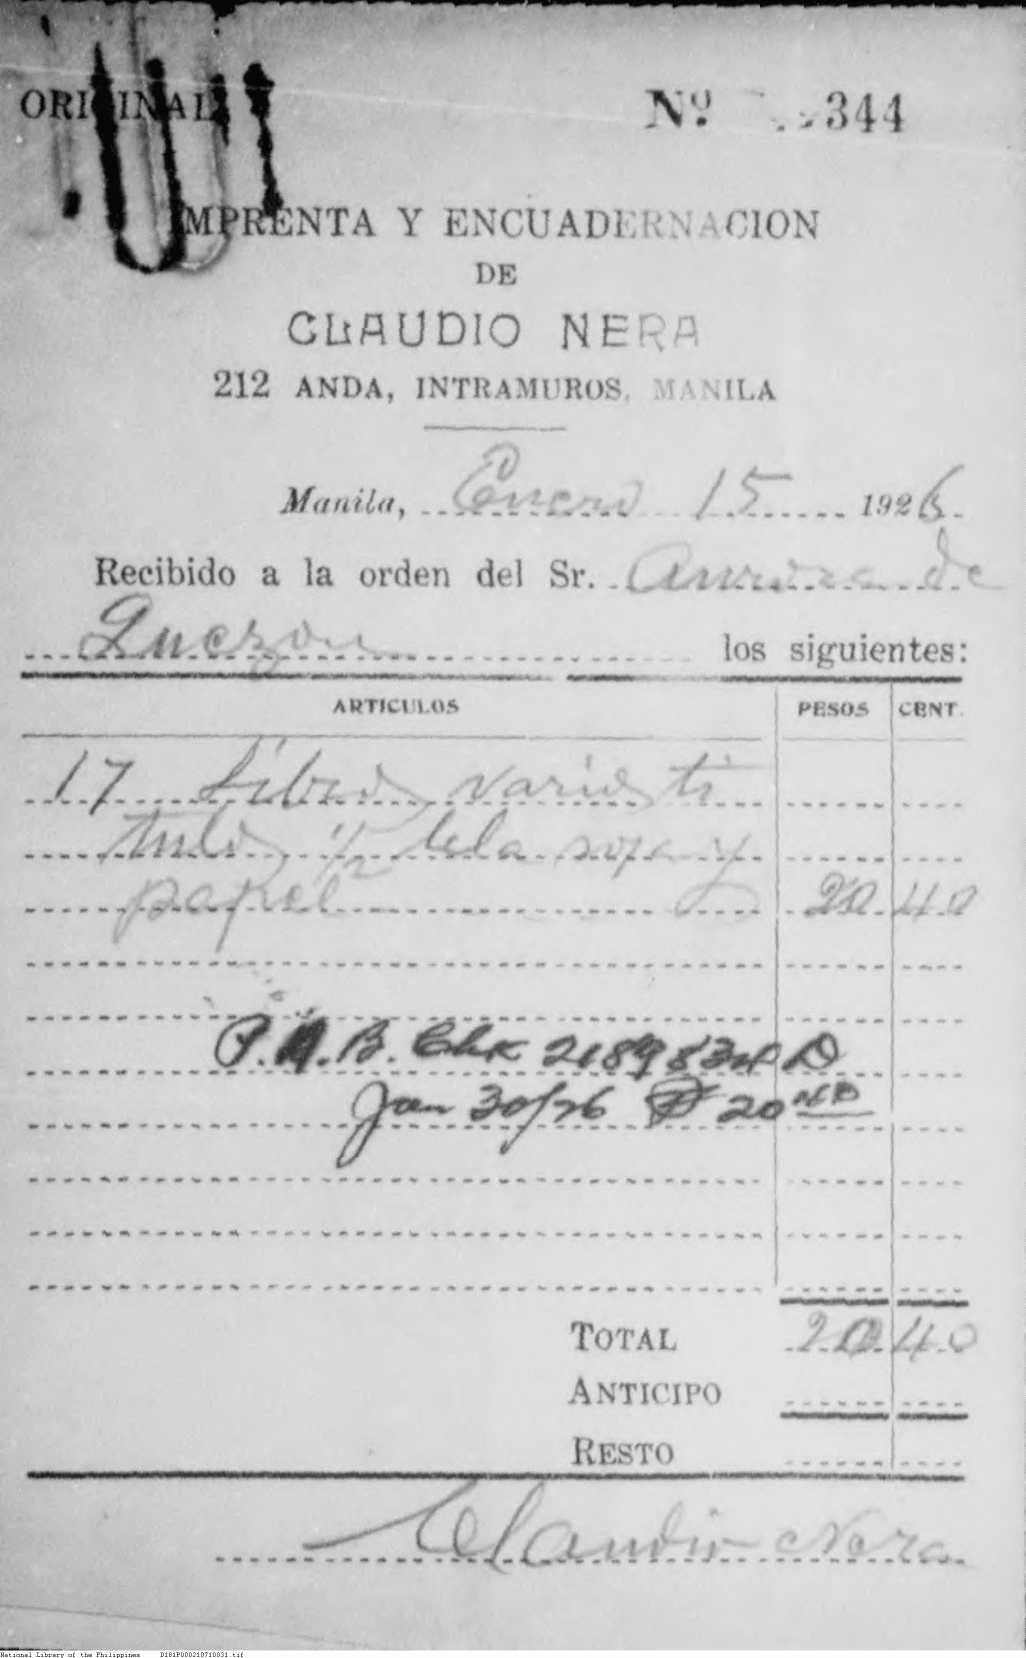 ORIGINAL
Nº 344
IMPRENTA Y ENCUADERNACION
DE
CLAUDIO NERA
212 ANDA, INTRAMUROS, MANILA
Manila, Enero 15 1926
Recibido a la orden del Sr. Aurora de
Quezon los siguientes:
ARTICULOS PESOS CENT.
17 Libros varios ti
tulos ½ tela roja y
papel 20 40
P.N.B. Chk 218983 D
Jan 30/26 ₱ 20.40
TOTAL 20 40
ANTICIPO
RESTO
Claudio Nera
National Library of the Philippines D181P000210710031.tif